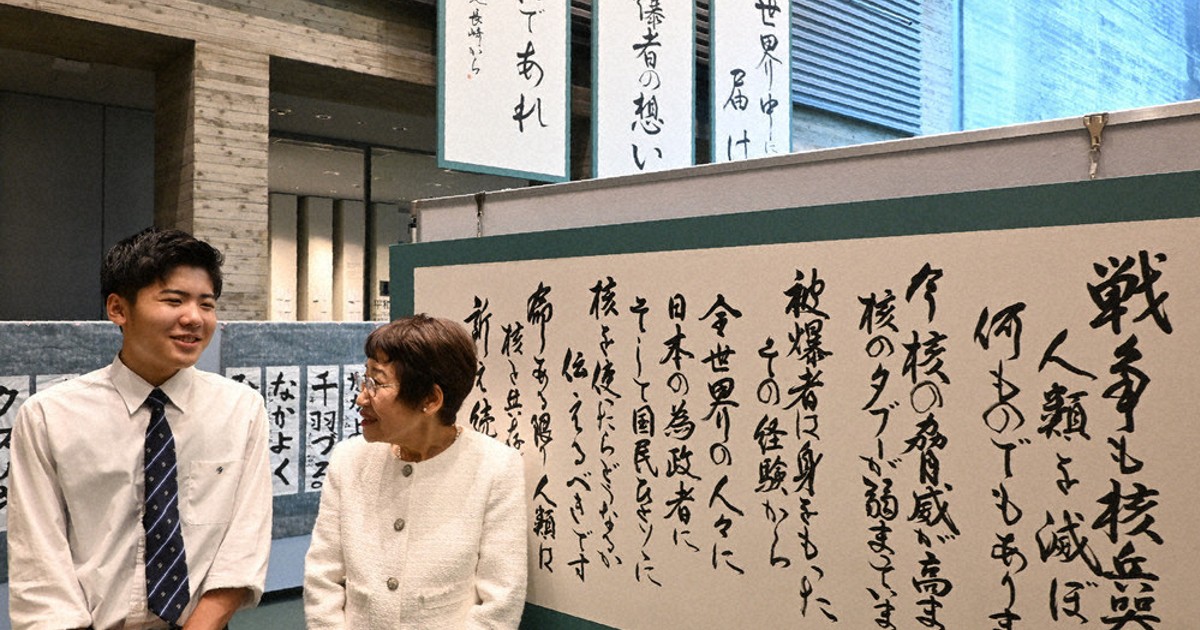 世界中に
届け
爆者の想い
であれ
長崎から
戦争も核兵器
人類を滅ぼ
何ものでもありま
今核の脅威が高ま
核のタブーが弱まっていま
被爆者は身をもった
その経験から
全世界の人々に
日本の為政者に
そして国民ひとりに
核を使ったらどうなるか
伝えるべきです
命ある限り人類は
核と共存
訴え続
千羽づる
なかよく